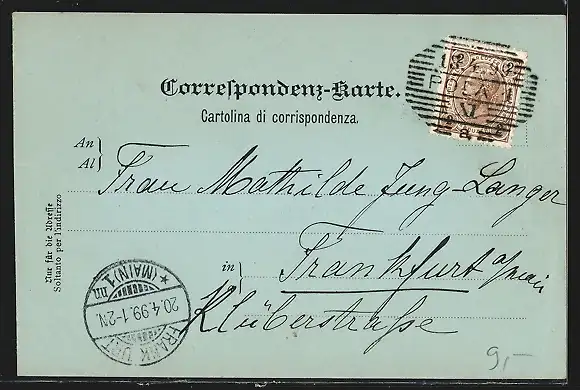 Correspondenz-Karte.
Cartolina di corrispondenza.
2 2
18 4 99
POLA 1
2 2
a
An
Al
Frau Mathilde Jung-Langer
in
Frankfurt a/Main
Klüberstraße
Nur für die Adresse
Soltanto per l'indirizzo
FRANKFURT
* (MAIN) 1 *
nn
20.4.99.1-2N.
9,-